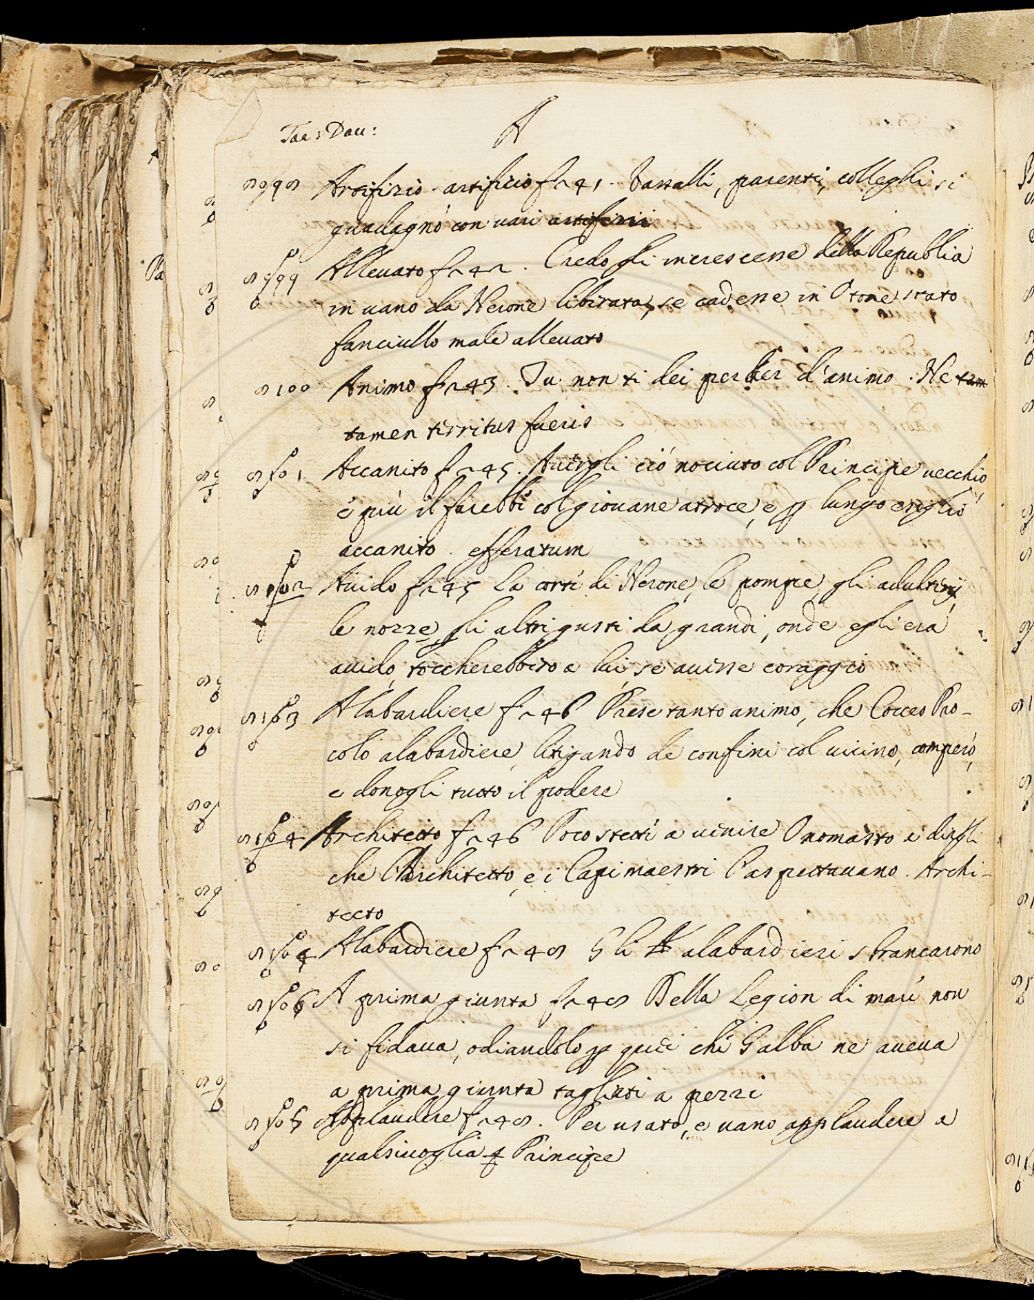 Tac: Dau:
A
Artifizio artificio f 241. Vassalli, parenti, colleghi si
guadagnò con vari artifizii
Allevato f 242. Credo gli increscesse della Republica
in vano da Nerone liberata, se cadesse in Otone stato
fanciullo male allevato
2100 Animo f 243. Tu non ti dei perder d'animo. Ne tam
tamen territus fueris
Accanito f 245. Avergli ciò nociuto col Principe vecchio,
e più il farebbe col giovane atroce, e p lungo esiglio
accanito. efferatum
Avido f 245 La corte di Nerone, le pompe, gli adulterij,
le nozze, gli altri gusti da grandi, onde egli era
avido, toccherebbero a lui, se avesse coraggio
Alabardiere f 246 Prese tanto animo, che Cocceo Pro-
colo alabardiere, litigando de confini col vicino, comperò,
e donogli tutto il podere
Architetto f 246 Poco stette a venire Onomasto e dirgli
che l'Architetto, e i Capimaestri l'aspettavano. Archi-
tecto
Alabardiere f 248 Gli alabardieri sbrancarono
A prima giunta f 248 Della Legion di mare non
si fidava, odiandolo p quei che Galba ne aveva
a prima giunta tagliati a pezzi
Applaudere f 248. Per usato, e vano applaudere a
qualsivoglia Principe